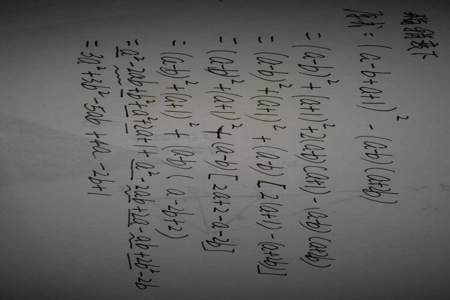 原式 = (a-b+a+1)² - (a-b)(a+2b)
= (a-b)² + (a+1)² + 2(a-b)(a+1) - (a-b)(a+2b)
= (a-b)² + (a+1)² + (a-b)[2(a+1) - (a+2b)]
= (a-b)² + (a+1)² + (a-b)[2a+2-a-2b]
= (a-b)² + (a+1)² + (a-b)(a-2b+2)
= a²-2ab+b²+a²+2a+1+a²-2ab+2a-ab+2b²-2b
= 3a²+3b²-5ab+4a-2b+1